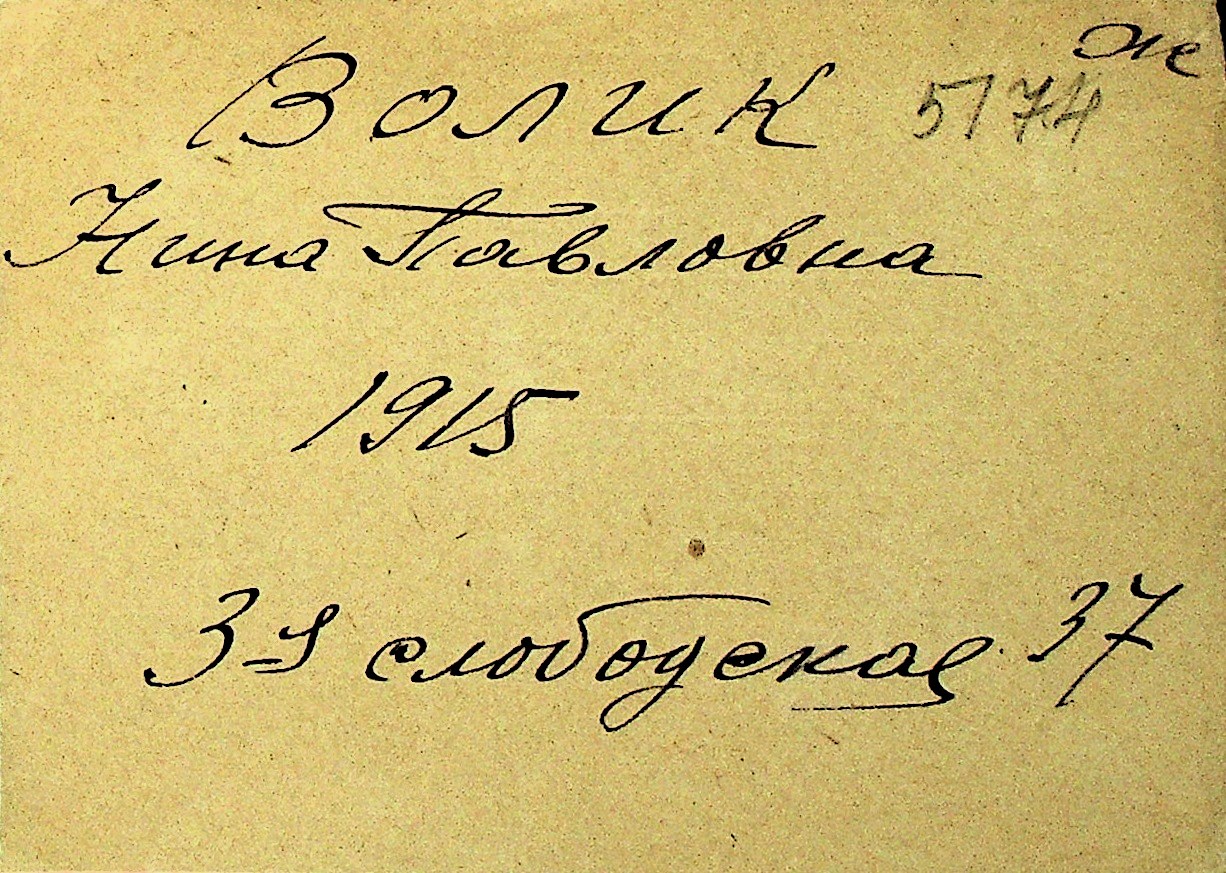 ж
Волик 5174
Нина Павловна
1915
3-я слободская 37